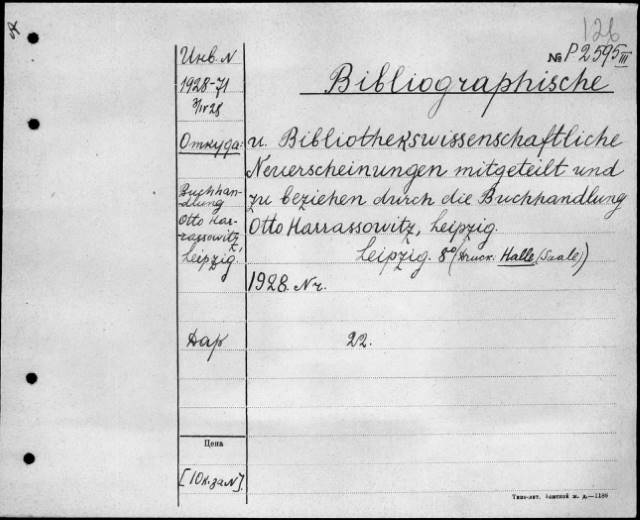 126
№ P2595 III
Инв. N
1928-71
3/IV 28
Откуда:
Buchhan-
dlung
Otto Har-
rassowitz,
Leipzig.
Дар
Цена
[10к. за N].
Bibliographische
u. Bibliothekswissenschaftliche
Neuerscheinungen mitgeteilt und
zu beziehen durch die Buchhandlung
Otto Harrassowitz, Leipzig.
Leipzig. 8° (Druck: Halle (Saale))
1928. Nr.
22.
Типо-лит. ж. д.—1186